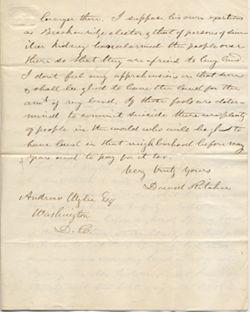 longer there. I suppose his own exertions
as Breckenridge elector & that of persons of sim-
ilar kidney has alarmed the people over
there so that they are afraid to buy land.
I don't feel any apprehensions in that score
& shall be glad to have the land for the
amt of my bond. If those fools are deter-
mined to commit suicide there are plenty
of people in the world who will be glad to
have land in that neighborhood before many
years and to pay for it too.
Very truly yours
David Ritchie
Andrew Wylie Esq
Washington
D. C.